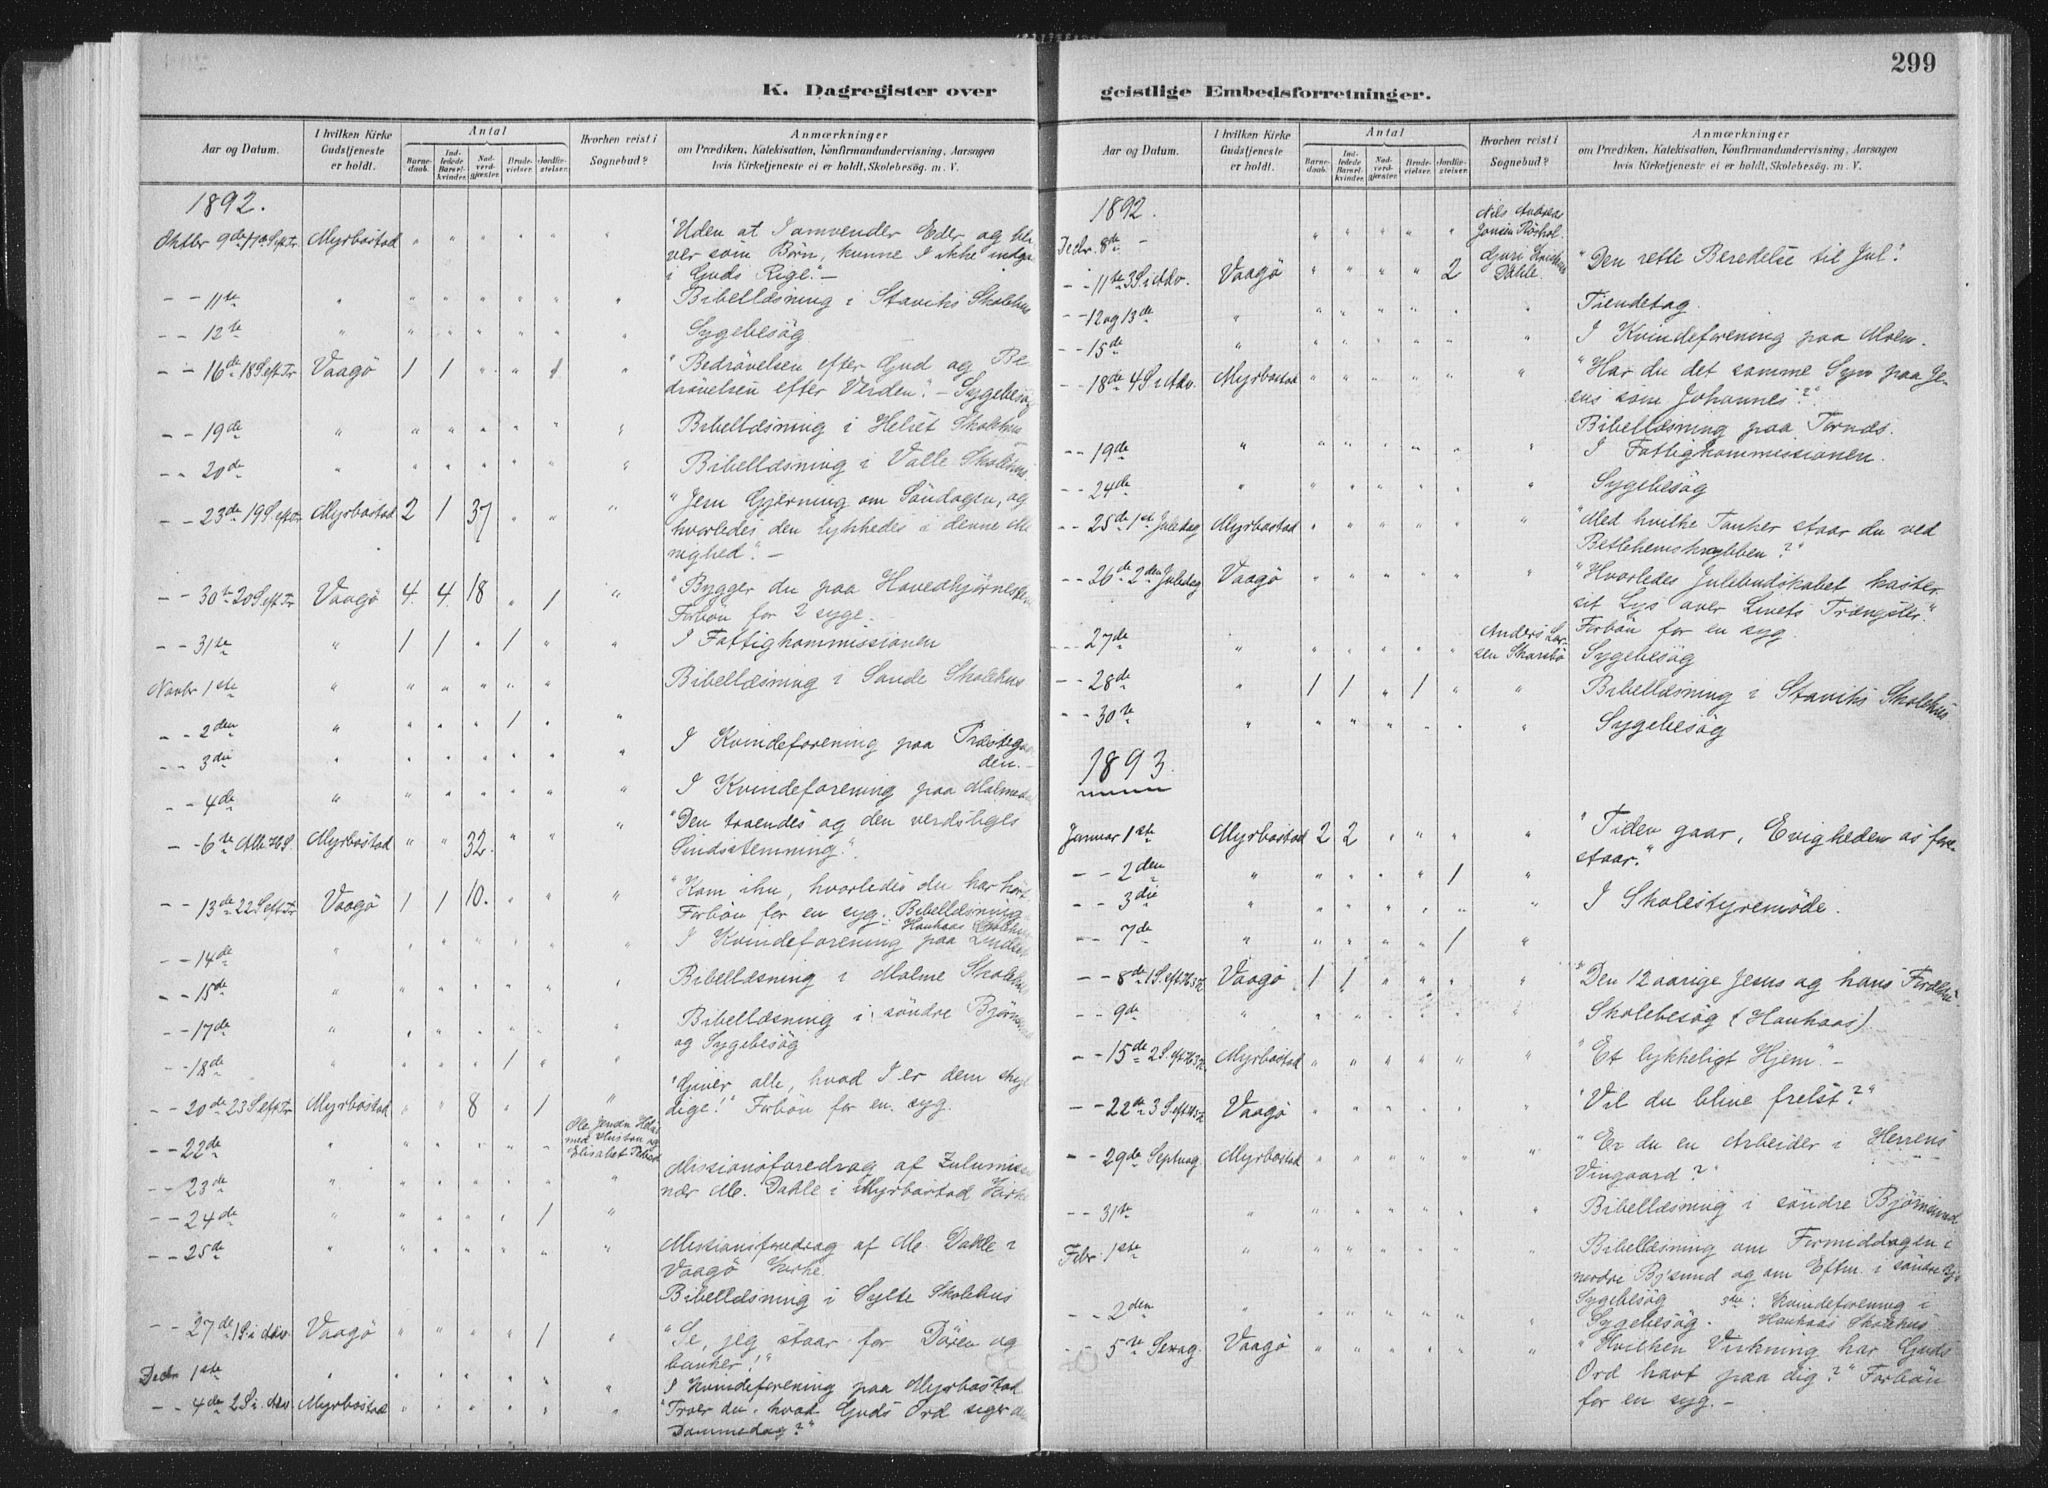 K. Dagregister over
Aar og Datum.
I hvilken Kirke Gudstjeneste er holdt.
Antal
Barnedaab.
Indledede Barselkvinder.
Nadverdgjæster.
Brudevielser.
Jordfæstelser.
Hvorhen reist i Sognebud?
Anmærkninger
om Prædiken, Katekisation, Konfirmandundervisning, Aarsagen
hvis Kirketjeneste ei er holdt, Skolebesøg. m. V.
1892.
Oktbr 9de 17de S. eft Tr. Myrbøstad " " " " " " "Uden at I omvender Eder og bli-
ver som Børn, kunne I ikke indgaa
i Guds Rige." –
- - 11te " " " " " " " Bibellæsning i Staviks Skolehus
- - 12te " " " " " " " Sygebesøg
- - 16de 18 S. eft Tr Vaagø 1 1 " " 1 " "Bedrøvelsen efter Gud og Be-
drøvelsen efter Verden". – Sygebesøg
- - 19de " " " " " " " Bibellæsning i Helset Skolehus
- - 20de " " " " " " " Bibellæsning i Valle Skolehus
- - 23de 19 S. eft Tr Myrbøstad 2 1 37 " " " "Jesu Gjerning om Søndagen, og
hvorledes den lykkedes i denne Me-
nighed". –
- - 30te 20 S. eft Tr Vaagø 4. 4. 18 " 1 " "Bygger du paa Hovedhjørnesten
Forbøn for 2 syge.
- - 31te " 1 1 " 1 " " I Fattigkommissionen
Novbr 1ste " " " " " " Bibellæsning i Sande Skolehus
- - 2den " " " " 1 " "
- - 3die " " " " " " " I Kvindeforening paa Præstegaar
den. –
- - 4de " " " " " " " I Kvindeforening paa Malme
- - 6te Alle H S. Myrbøstad " " 32. " " " "Den troendes og den verdsliges
Sindsstemning".
- - 13de 22 S eft Tr Vaagø 1 1 10. " " " "Kom ihu, hvorledes du har hørt
Forbøn for en syg. Bibellæsning
Haukaas Skolehus
- - 14de " " " " " " " I Kvindeforening paa
- - 15de " " " " " " " Bibellæsning i Malme Skolehus
- - 17de " " " " " " " Bibellæsning i søndre Bjørnsund
og Sygebesøg
- - 18de " " " " 1 " "
- - 20de 23 S eft Tr Myrbøstad " " 8 " 1 " "Giver alle, hvad I er dem skyl
dige!" Forbøn for en syg.
- - 22de " " " " " " Ole Jensen
med Hustru og
Elisabet
- - 23de " " " " " " " Missionsforedrag af Zulumissio
nær M. Dahle i Myrbøstad Kirke
- - 24de " " " " " 1 "
- - 25de " " " " " " " Missionsforedrag af M. Dahle i
Vaagø Kirke.
Bibellæsning i Sylte Skolehus
- - 27de 1 S i Adv. Vaagø " " " " 1 " "Se, jeg staar for Døren og
banker!"
Decbr 1ste " " " " " " " I Kvindeforening paa Myrbøstad
- - 4de 2 S i Adv Myrbøstad " " " " " " "Troer du, hvad Guds Ord siger om
Dommedag?"
299
geistlige Embedsforretninger.
Aar og Datum.
I hvilken Kirke Gudstjeneste er holdt.
Antal
Barnedaab.
Indledede Barselkvinder.
Nadverdgjæster.
Brudevielser.
Jordfæstelser.
Hvorhen reist i Sognebud?
Anmærkninger
om Prædiken, Katekisation, Konfirmandundervisning, Aarsagen
hvis Kirketjeneste ei er holdt, Skolebesøg. m. V.
1892.
Decbr. 8de – " " " " " Nils Andreas
Jonsen
- - 11te 3 S i Adv. Vaagø " " " " 2 Guri
Dahle. "Den rette Beredelse til Jul".
- - 12 og 13de " " " " " " " Tiendetag.
- - 15de " " " " " " " I Kvindeforening paa Malm.
- - 18de 4 S i Adv. Myrbøstad " " " " " " "Har du det samme Syn paa Je-
sus som Johannes?"
Bibellæsning paa Tornæs.
- - 19de " " " " " " " I Fattigkommissionen.
- - 24de " " " " " " Sygebesøg
- - 25de 1ste Juledag Myrbøstad " " " " " " "Med hvilke Tanker staar du ved
Betlehemskrybben?"
- - 26de 2den Juledag Vaagø " " " " " " "Hvorledes Julebudskabet kaster
sit Lys over Livets Trængsler."
Forbøn for en syg.
- - 27de " " " " " " Anders Lar-
sen Skarsbø Sygebesøg
- - 28de " 1 1 " 1 " " Bibellæsning i Staviks Skolehus
- - 30te " " " " " " " Sygebesøg
1893.
Januar 1ste Myrbøstad 2 2 " " " " "Tiden gaar, Evigheden os fore-
staar."
- - 2den " " " " " 1 "
- - 3die " " " " " " " I Skolestyremøde.
- - 7de " " " " " 1 "
- - 8de 1 S. eft H3K Vaagø 1 1 " " " " "Den 12 aarige Jesus og hans Forældre"
- - 9de " " " " " " " Skolebesøg (Haukaas)
- - 15de 2 S. eft H3K. Myrbøstad " " " " " " "Et lykkeligt Hjem". –
- - 22de 3 S eft H3K Vaagø " " " " " " "Vil du blive frelst?"
- - 29de Septuag Myrbøstad " " " " " " "Er du en Arbeider i Herrens
Vingaard?"
- - 31te " " " " " " " Bibellæsning i søndre Bjørnsund
Febr. 1ste " " " " " " " Bibellæsning om Formiddagen i
nordre Bj'sund og om Efterm. i søndre Bj.
Sygebesøg 3die: Kvindeforening i
- - 2den " " " " " " " Sygebesøg. Haukaas Skolehus
- - 5te Sexag. Vaagø " " " " " " "Hvilken Virkning har Guds
Ord havt paa dig?" Forbøn
for en syg. –